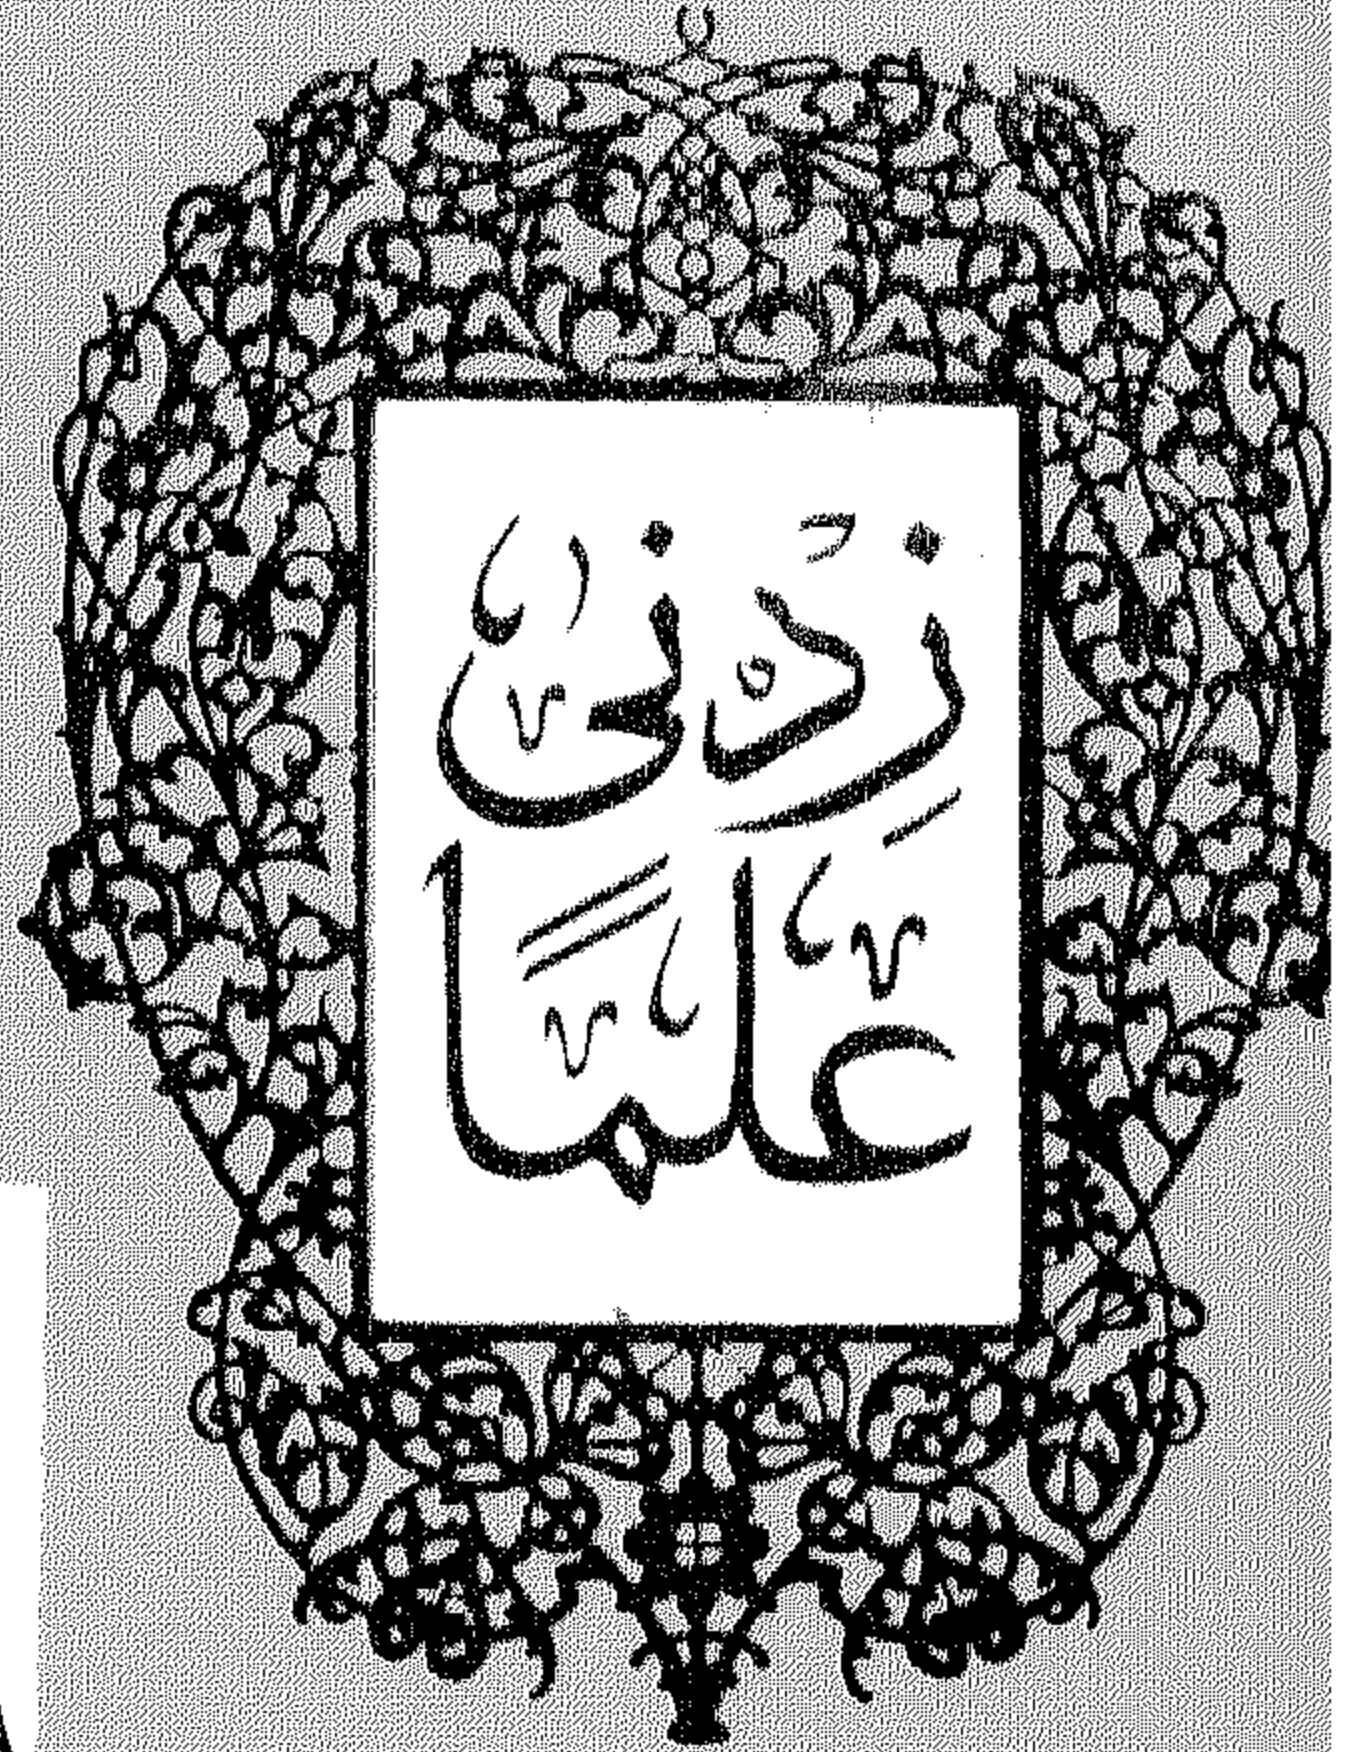 زِدْنى
علمًا